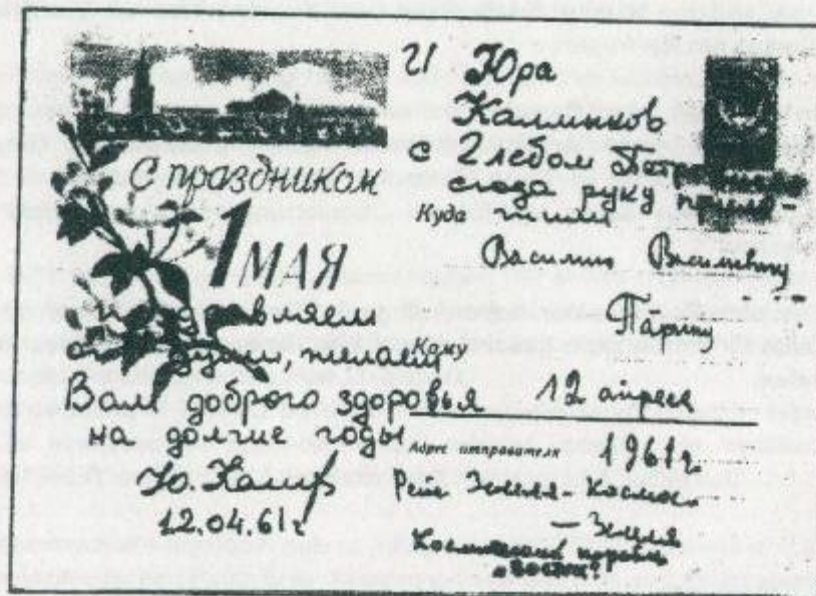 С праздником
1 МАЯ
поздравляем
от души, желаем
Вам доброго здоровья
на долгие годы
12.04.61г
И Юра
Калинков
с Глебом
сюда руку
Куда
Василию Васильевичу
Парину
Кому
12 апреля
1961г.
Адрес отправителя
Рейс Земля - Космос
- Земля
Космический корабль
"Восток"